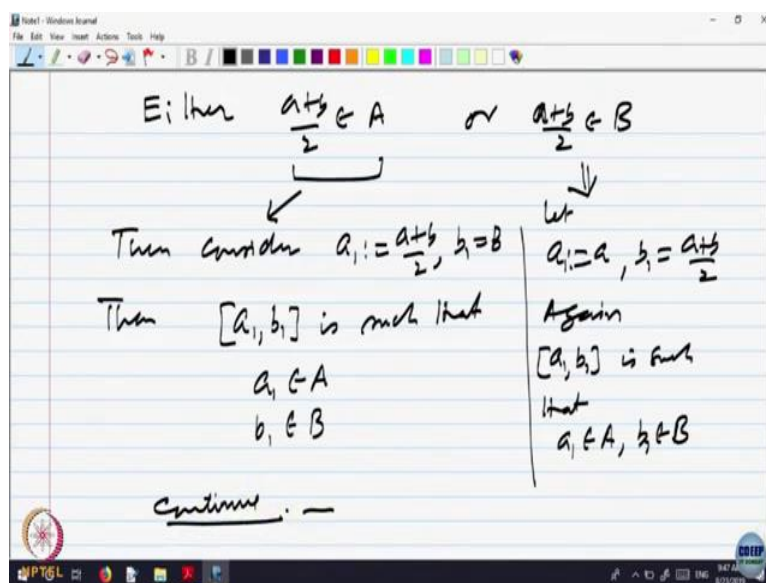 Note1 - Windows Journal
File Edit View Insert Actions Tools Help
B I
Either a+b/2 ∈ A or a+b/2 ∈ B
Then consider a₁ := a+b/2, b₁ = B
Then [a₁, b₁] is such that
a₁ ∈ A
b₁ ∈ B
Continue. —
let
a₁ := a, b₁ = a+b/2
Again
[a₁, b₁] is such
that
a₁ ∈ A, b₁ ∈ B
NPTEL
ENG
CDEEP